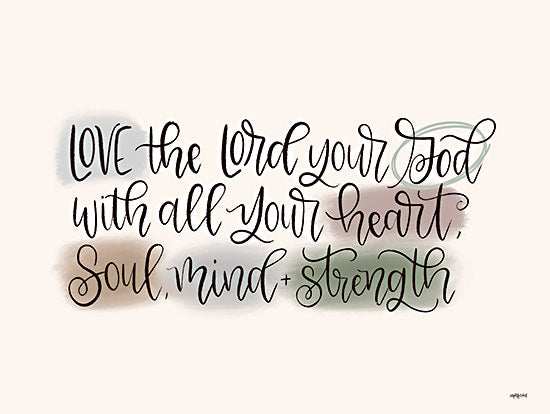 LOVE the Lord your God
with all your heart,
Soul, mind + strength